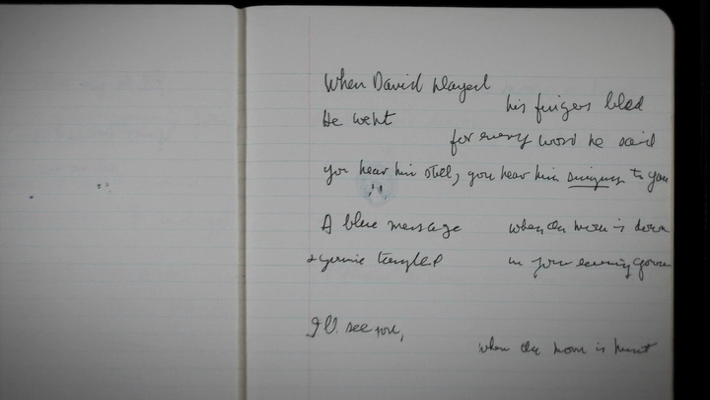 When David played
his fingers bled
He wept
for every word he said
you hear him still, you hear him singing to you
A blue message when the moon is down
& you're tangled in your evening gown
I'll see you,
when the moon is